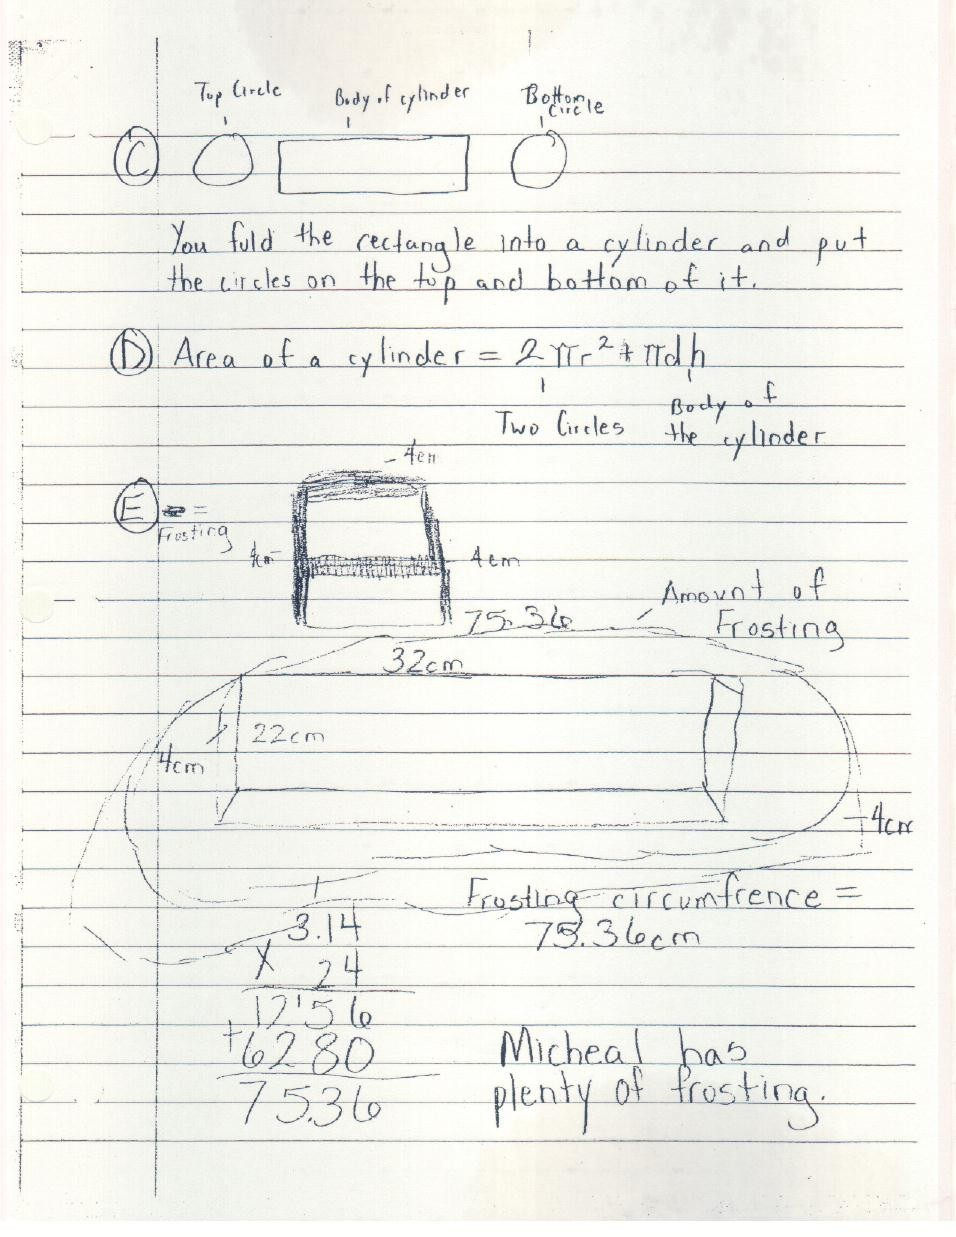 Top Circle Body of cylinder Bottom Circle
C
You fold the rectangle into a cylinder and put
the circles on the top and bottom of it.
D Area of a cylinder = 2πr² + πdh
Two Circles Body of the cylinder
4cm
E =
Frosting
4cm 4cm
Amount of
75.36 Frosting
32cm
22cm
4cm
4cm
Frosting circumfrence =
3.14 75.36cm
X 24
1
1256
+6280 Micheal has
75.36 plenty of frosting.